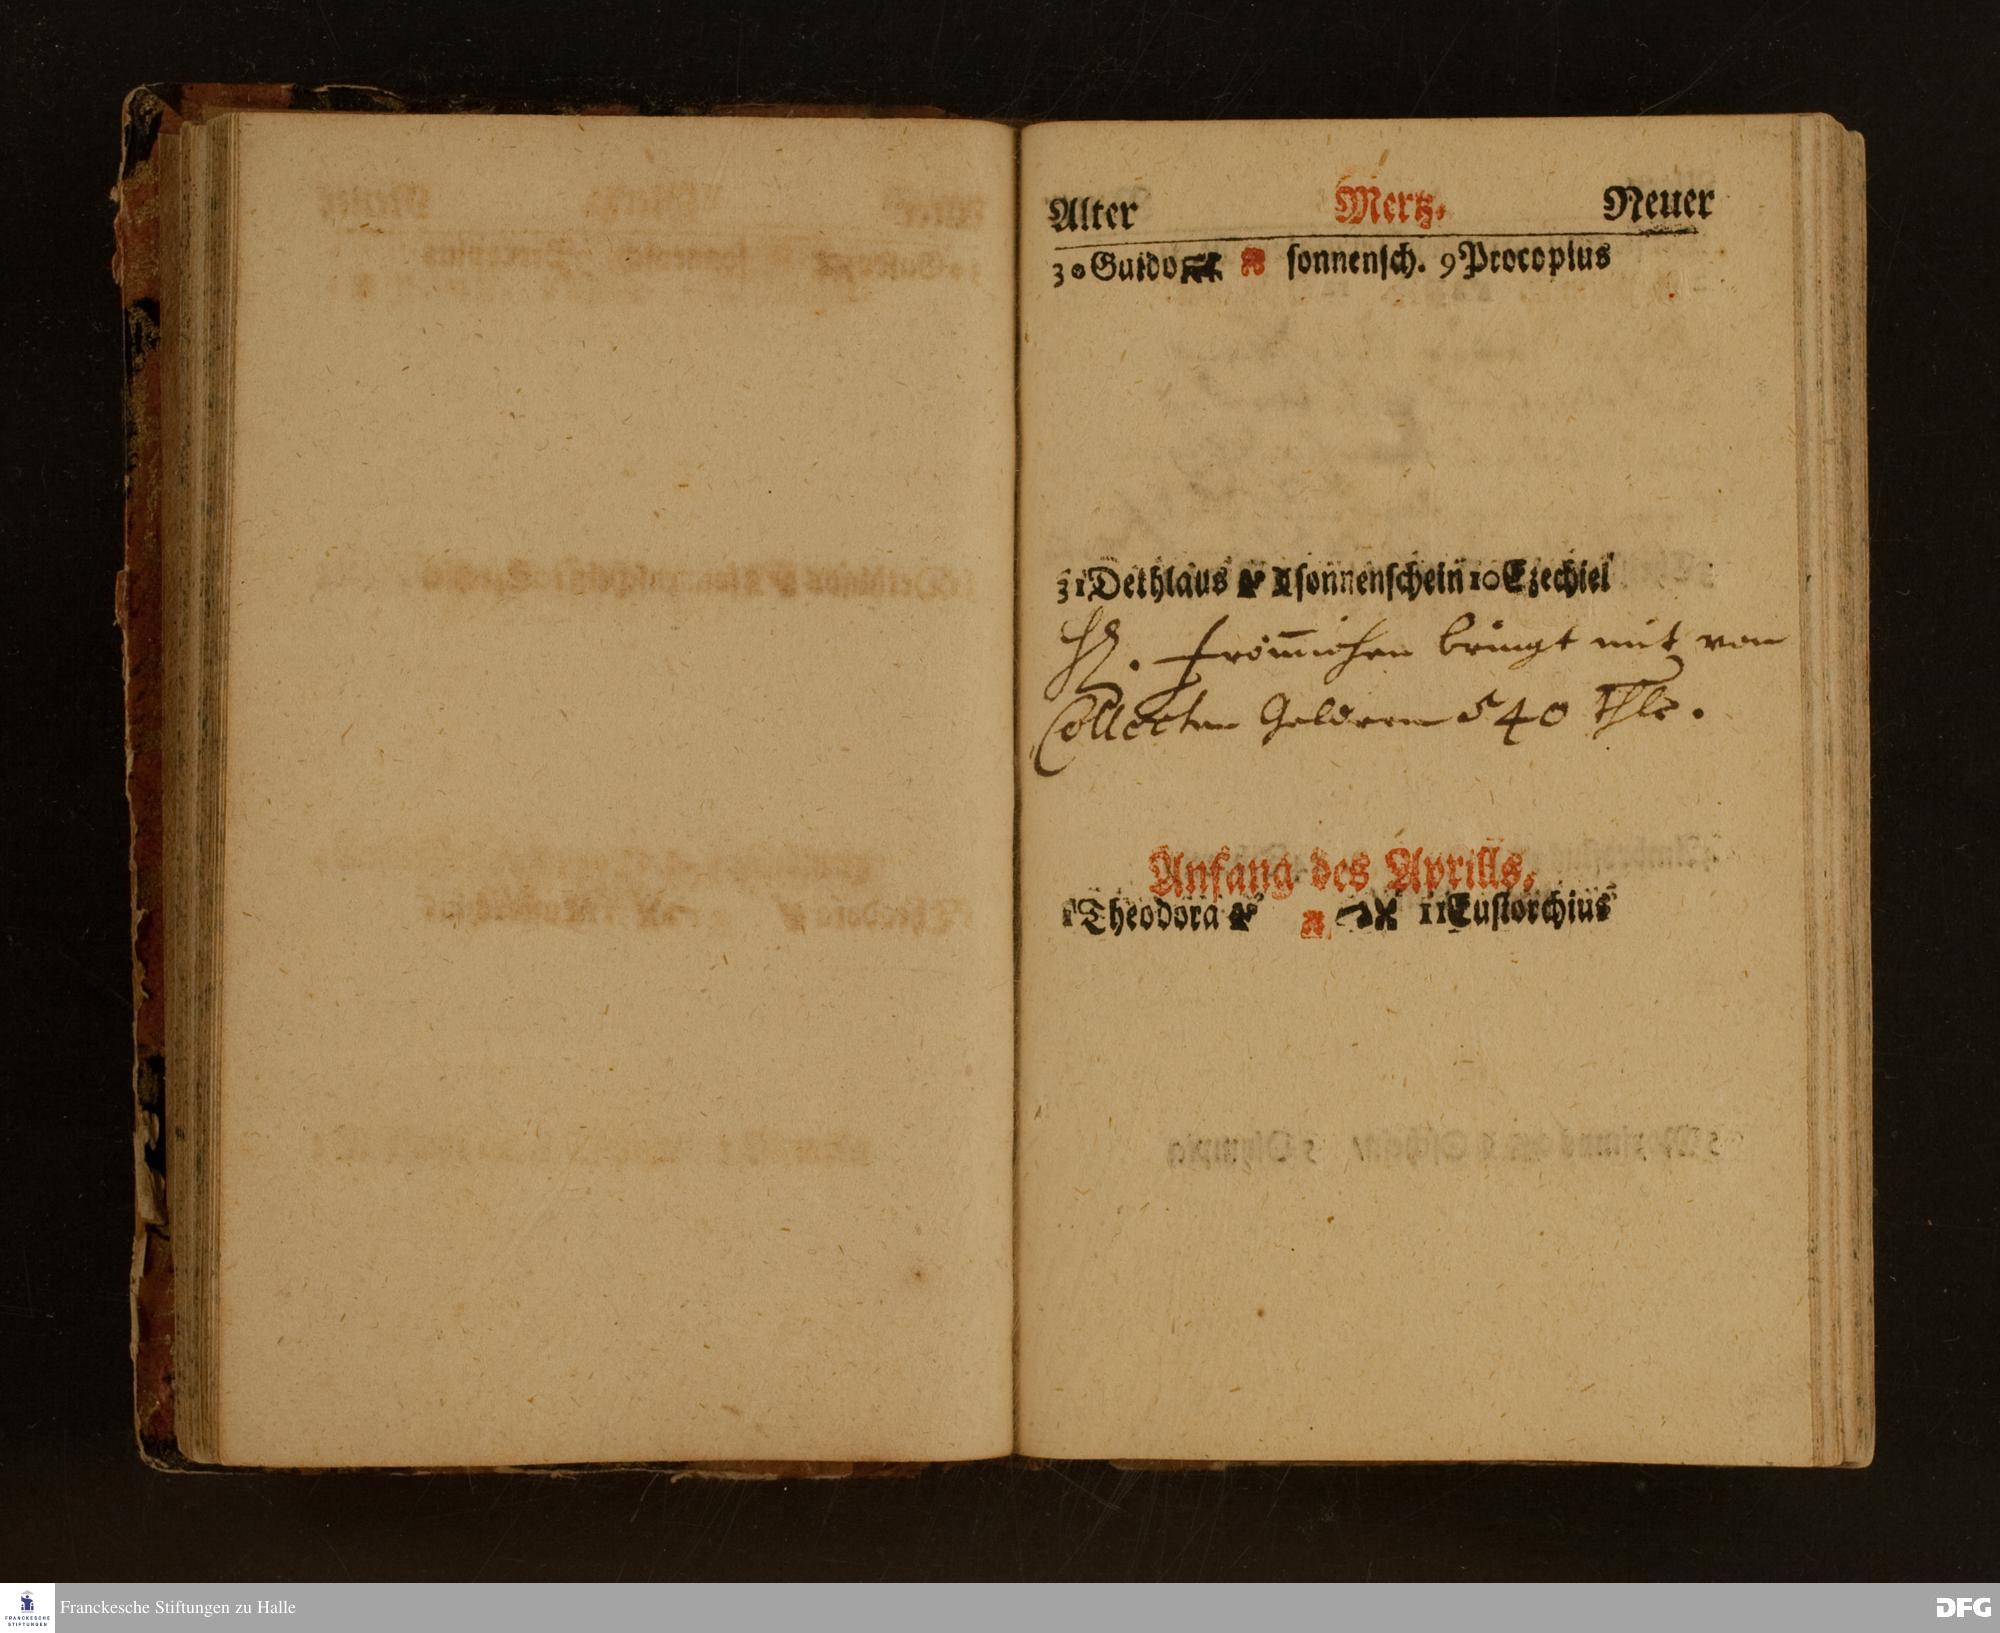 Alter Mertz. Neuer
30 Guido sonnensch. 9 Procopius
31 Dethlaus sonnenschein 10 Ezechiel
H. Frömichen bringt mit von
Collecten Geldern 540 Thlr.
Anfang des Aprills.
1 Theodora 11 Eustorchius
FRANCKESCHE
STIFTUNGEN
Franckesche Stiftungen zu Halle
DFG